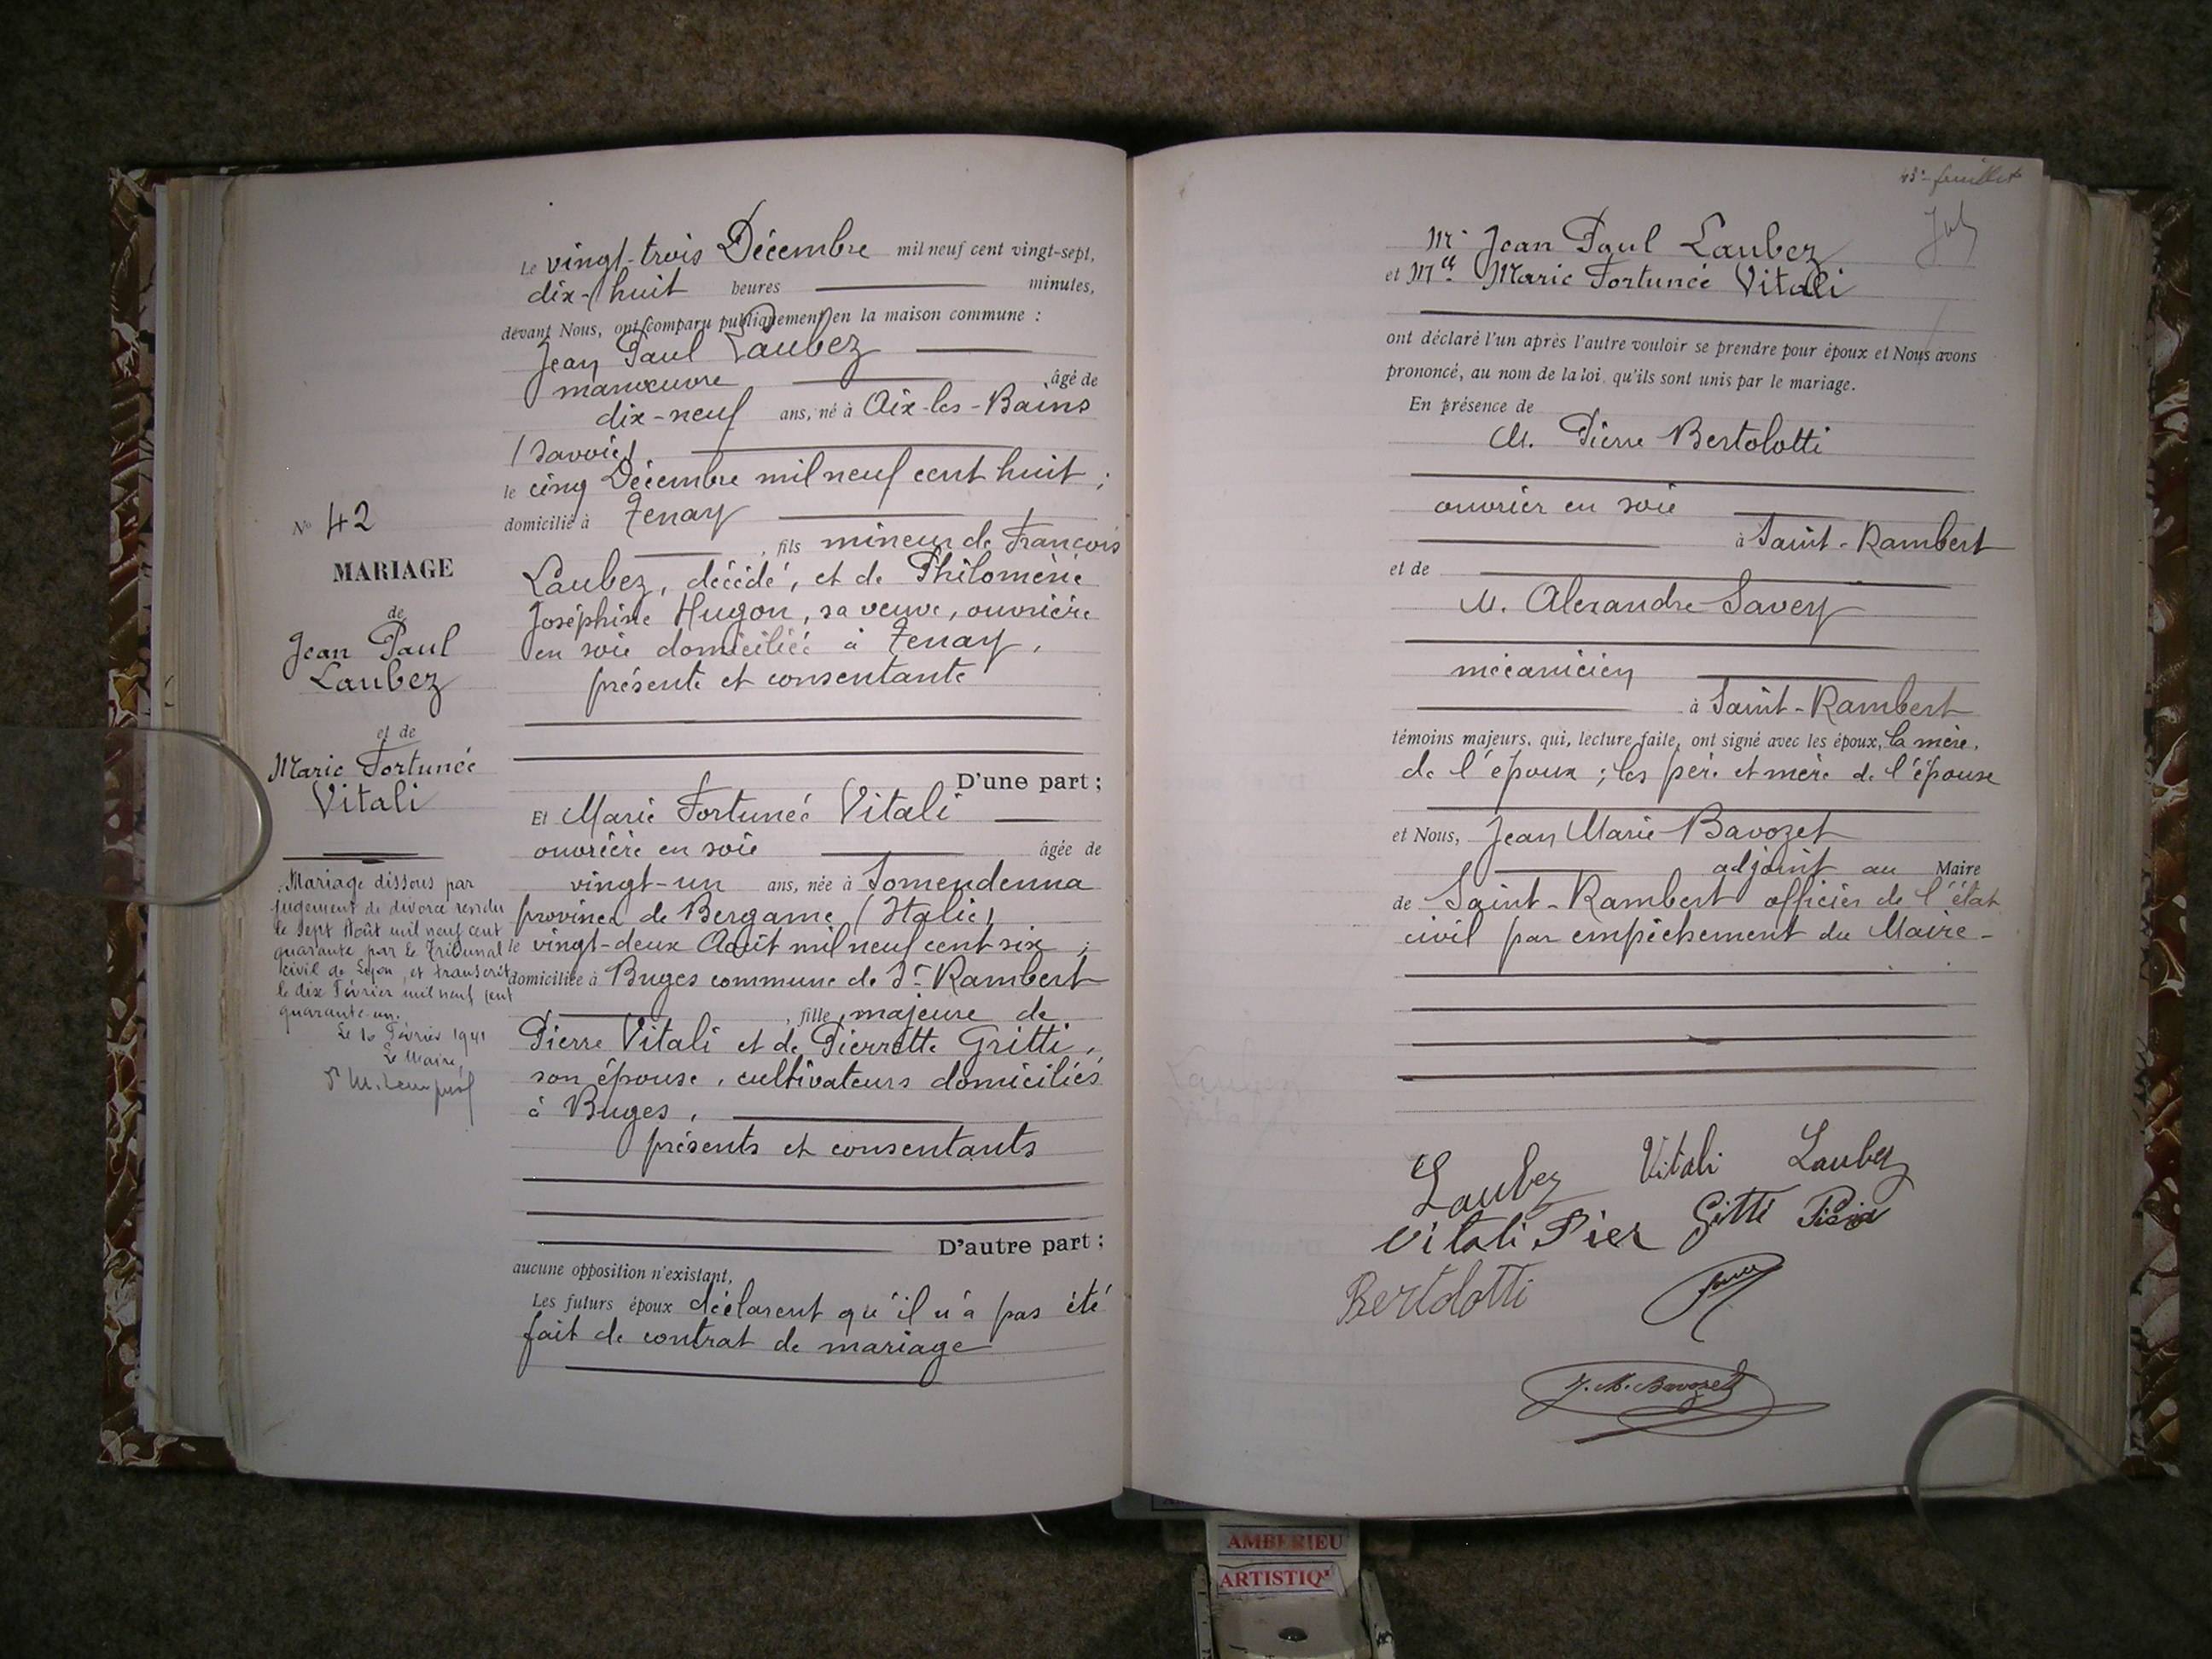 N° 42
MARIAGE
de
Jean Paul
Laubez
et de
Marie Fortunée
Vitali
Mariage dissous par
jugement de divorce rendu
le sept Août mil neuf cent
quarante par le Tribunal
civil de Lyon et transcrit
le dix Février mil neuf cent
quarante-un.
Le 10 Février 1941
Le Maire,
Le vingt-trois Décembre mil neuf cent vingt-sept,
dix-huit heures minutes,
devant Nous, ont comparu publiquement en la maison commune :
Jean Paul Laubez
manœuvre âgé de
dix-neuf ans, né à Aix-les-Bains
(Savoie)
le cinq Décembre mil neuf cent huit ;
domicilié à Tenay
, fils mineur de François
Laubez, décédé, et de Philomène
Joséphine Hugon, sa veuve, ouvrière
en soie domiciliée à Tenay,
présente et consentante
D'une part ;
Et Marie Fortunée Vitali
ouvrière en soie âgée de
vingt-un ans, née à Somendenna
province de Bergame (Italie)
le vingt-deux Août mil neuf cent six ;
domiciliée à Buges commune de St Rambert
, fille majeure de
Pierre Vitali et de Pierrette Gritti,
son épouse, cultivateurs domiciliés
à Buges,
présents et consentants
D'autre part ;
aucune opposition n'existant,
Les futurs époux déclarent qu'il n'a pas été
fait de contrat de mariage
43e feuillet
Mr Jean Paul Laubez
et Melle Marie Fortunée Vitali
ont déclaré l'un après l'autre vouloir se prendre pour époux et Nous avons
prononcé, au nom de la loi, qu'ils sont unis par le mariage.
En présence de
M. Pierre Bertolotti
ouvrier en soie
à Saint-Rambert
et de
M. Alexandre Savey
mécanicien
à Saint-Rambert
témoins majeurs, qui, lecture faite, ont signé avec les époux, la mère
de l'époux ; les père et mère de l'épouse
et Nous, Jean Marie Bavozet
adjoint au Maire
de Saint-Rambert officier de l'état
civil par empêchement du Maire -
Laubez Vitali Laubez
Vitali Pier Gitti
Bertolotti
J. M. Bavozet
AMBERIEU
ARTISTIQ